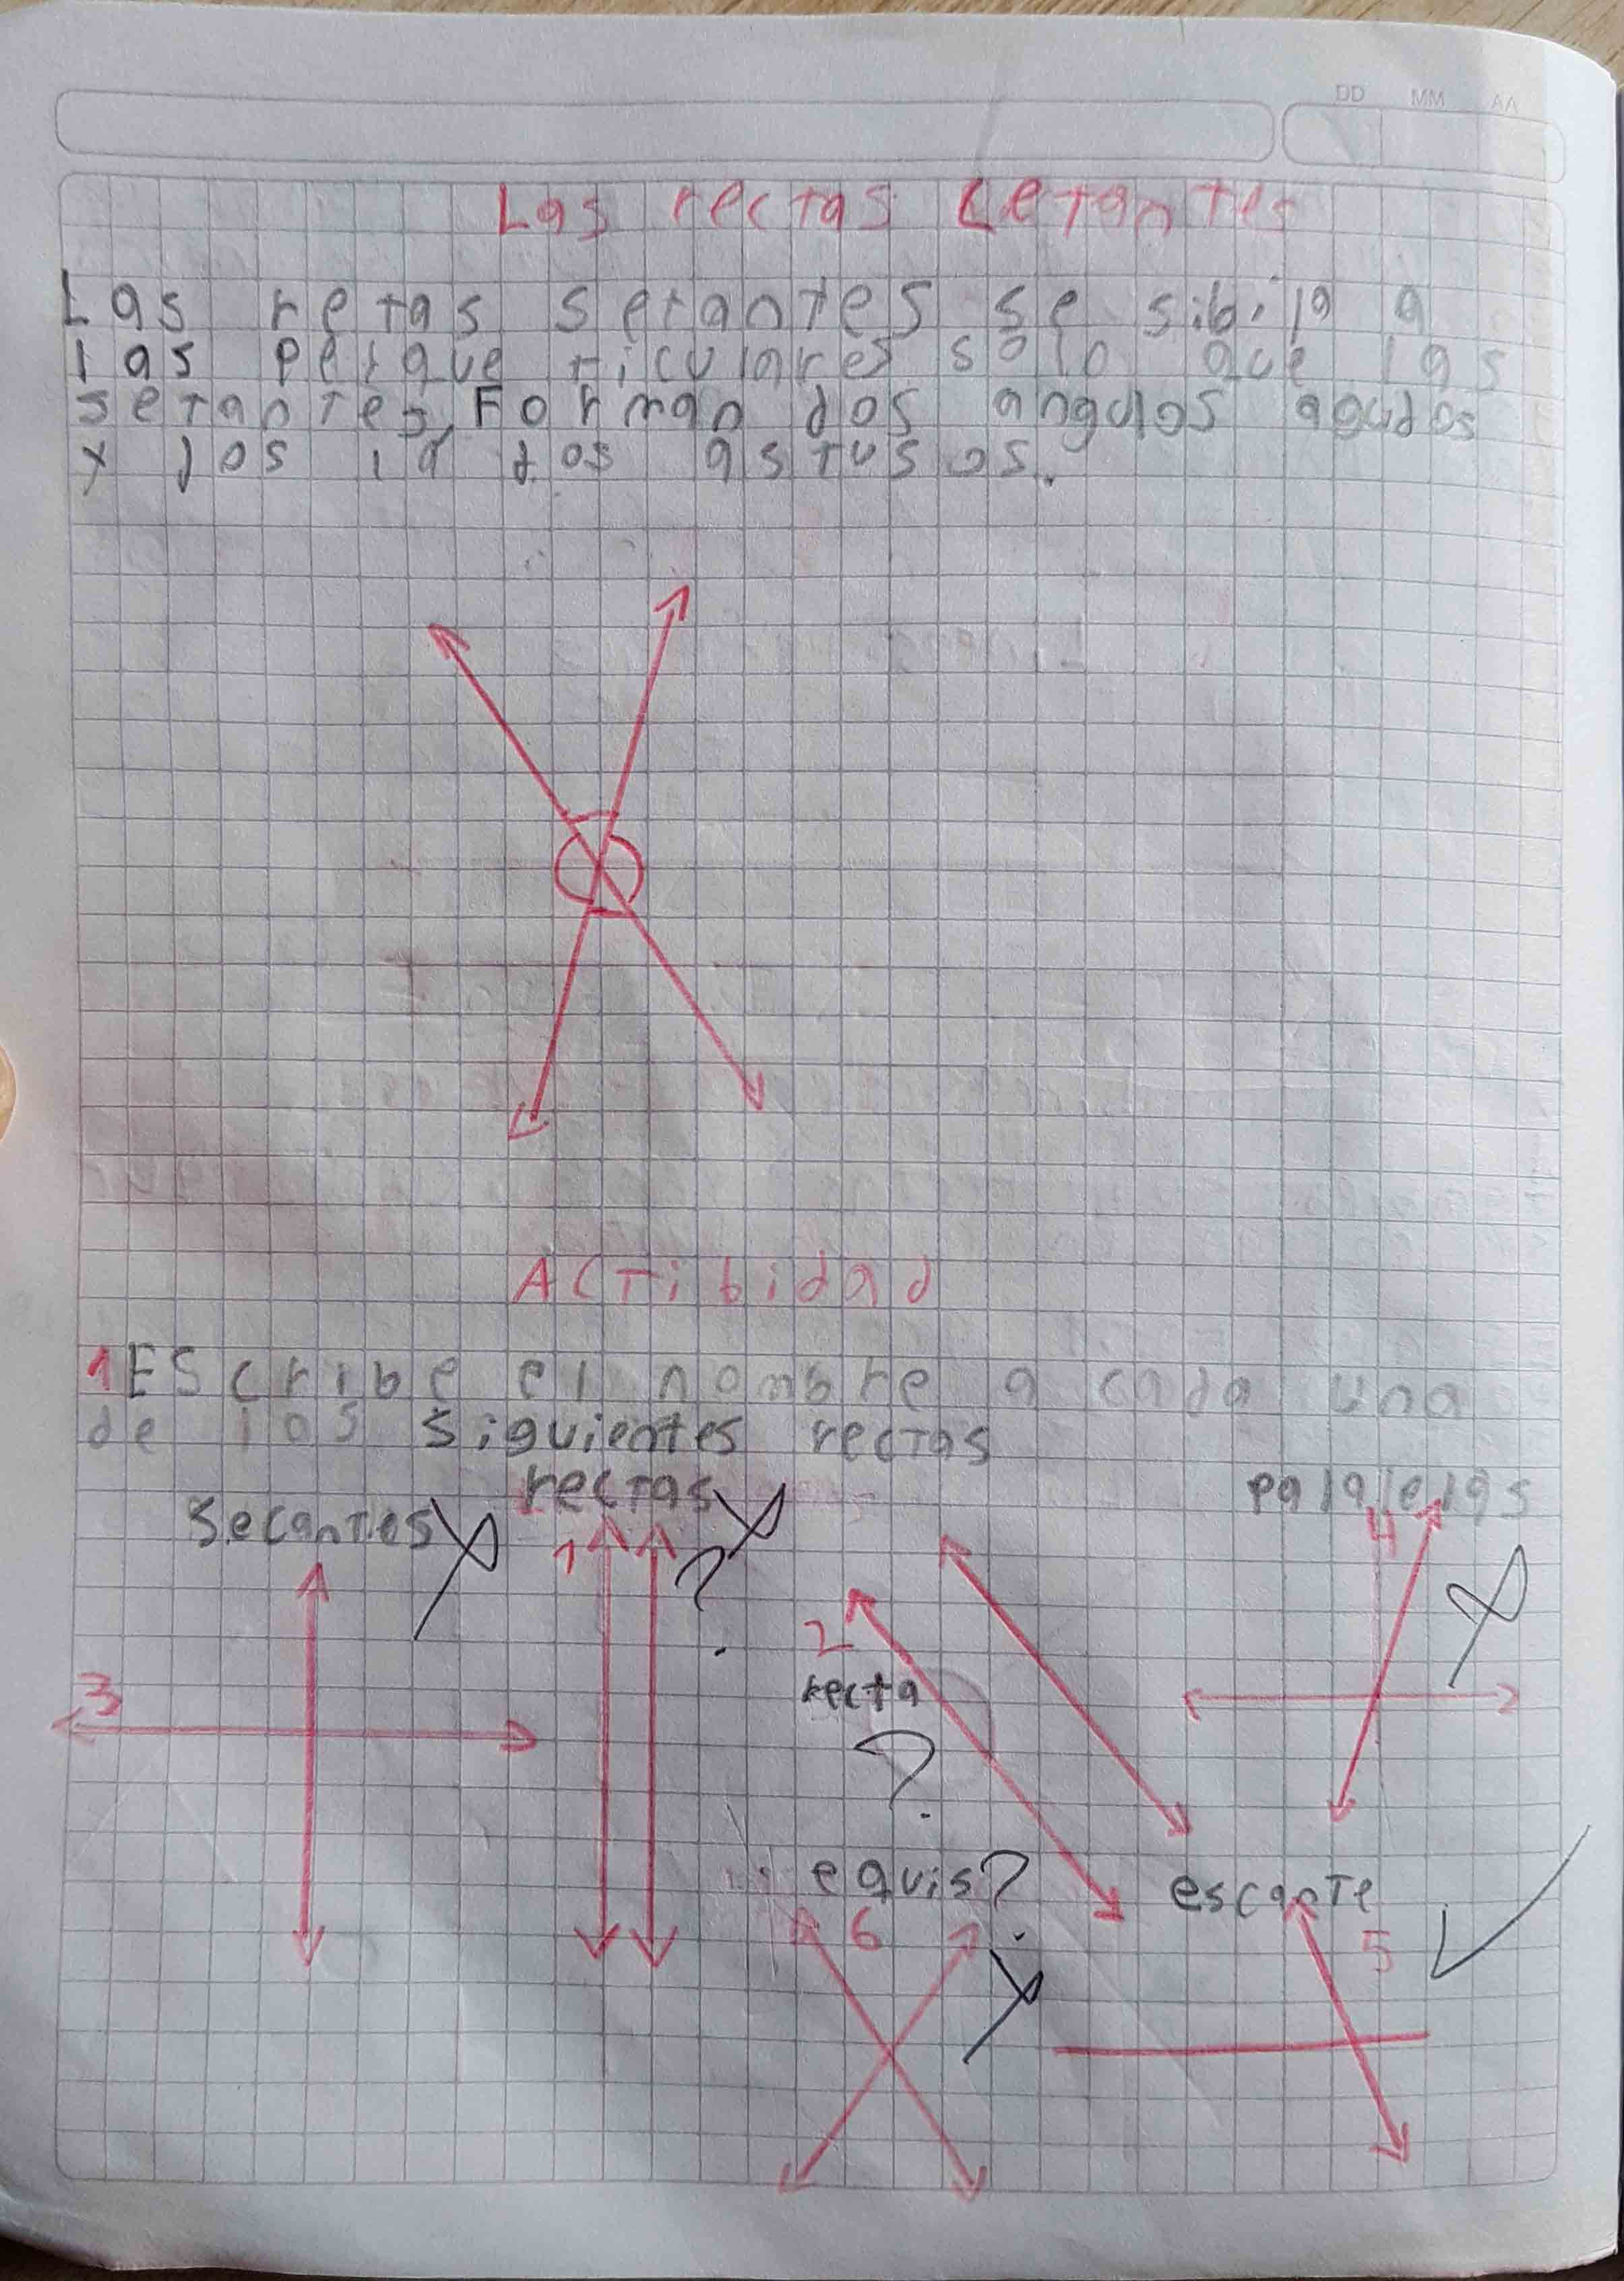 DD MM AA
Las rectas Cetantes
Las retas setantes se sibila a
las perque ticulares solo que las
setantes, Forman dos angulos agudos
y dos la dos astusos.
ACTibidad
1 EScribe el nombre a cada una
de los siguientes rectas
secantes
rectas
palalelas
1
?
4
2
recta
?
3
equis?
escante
6
5